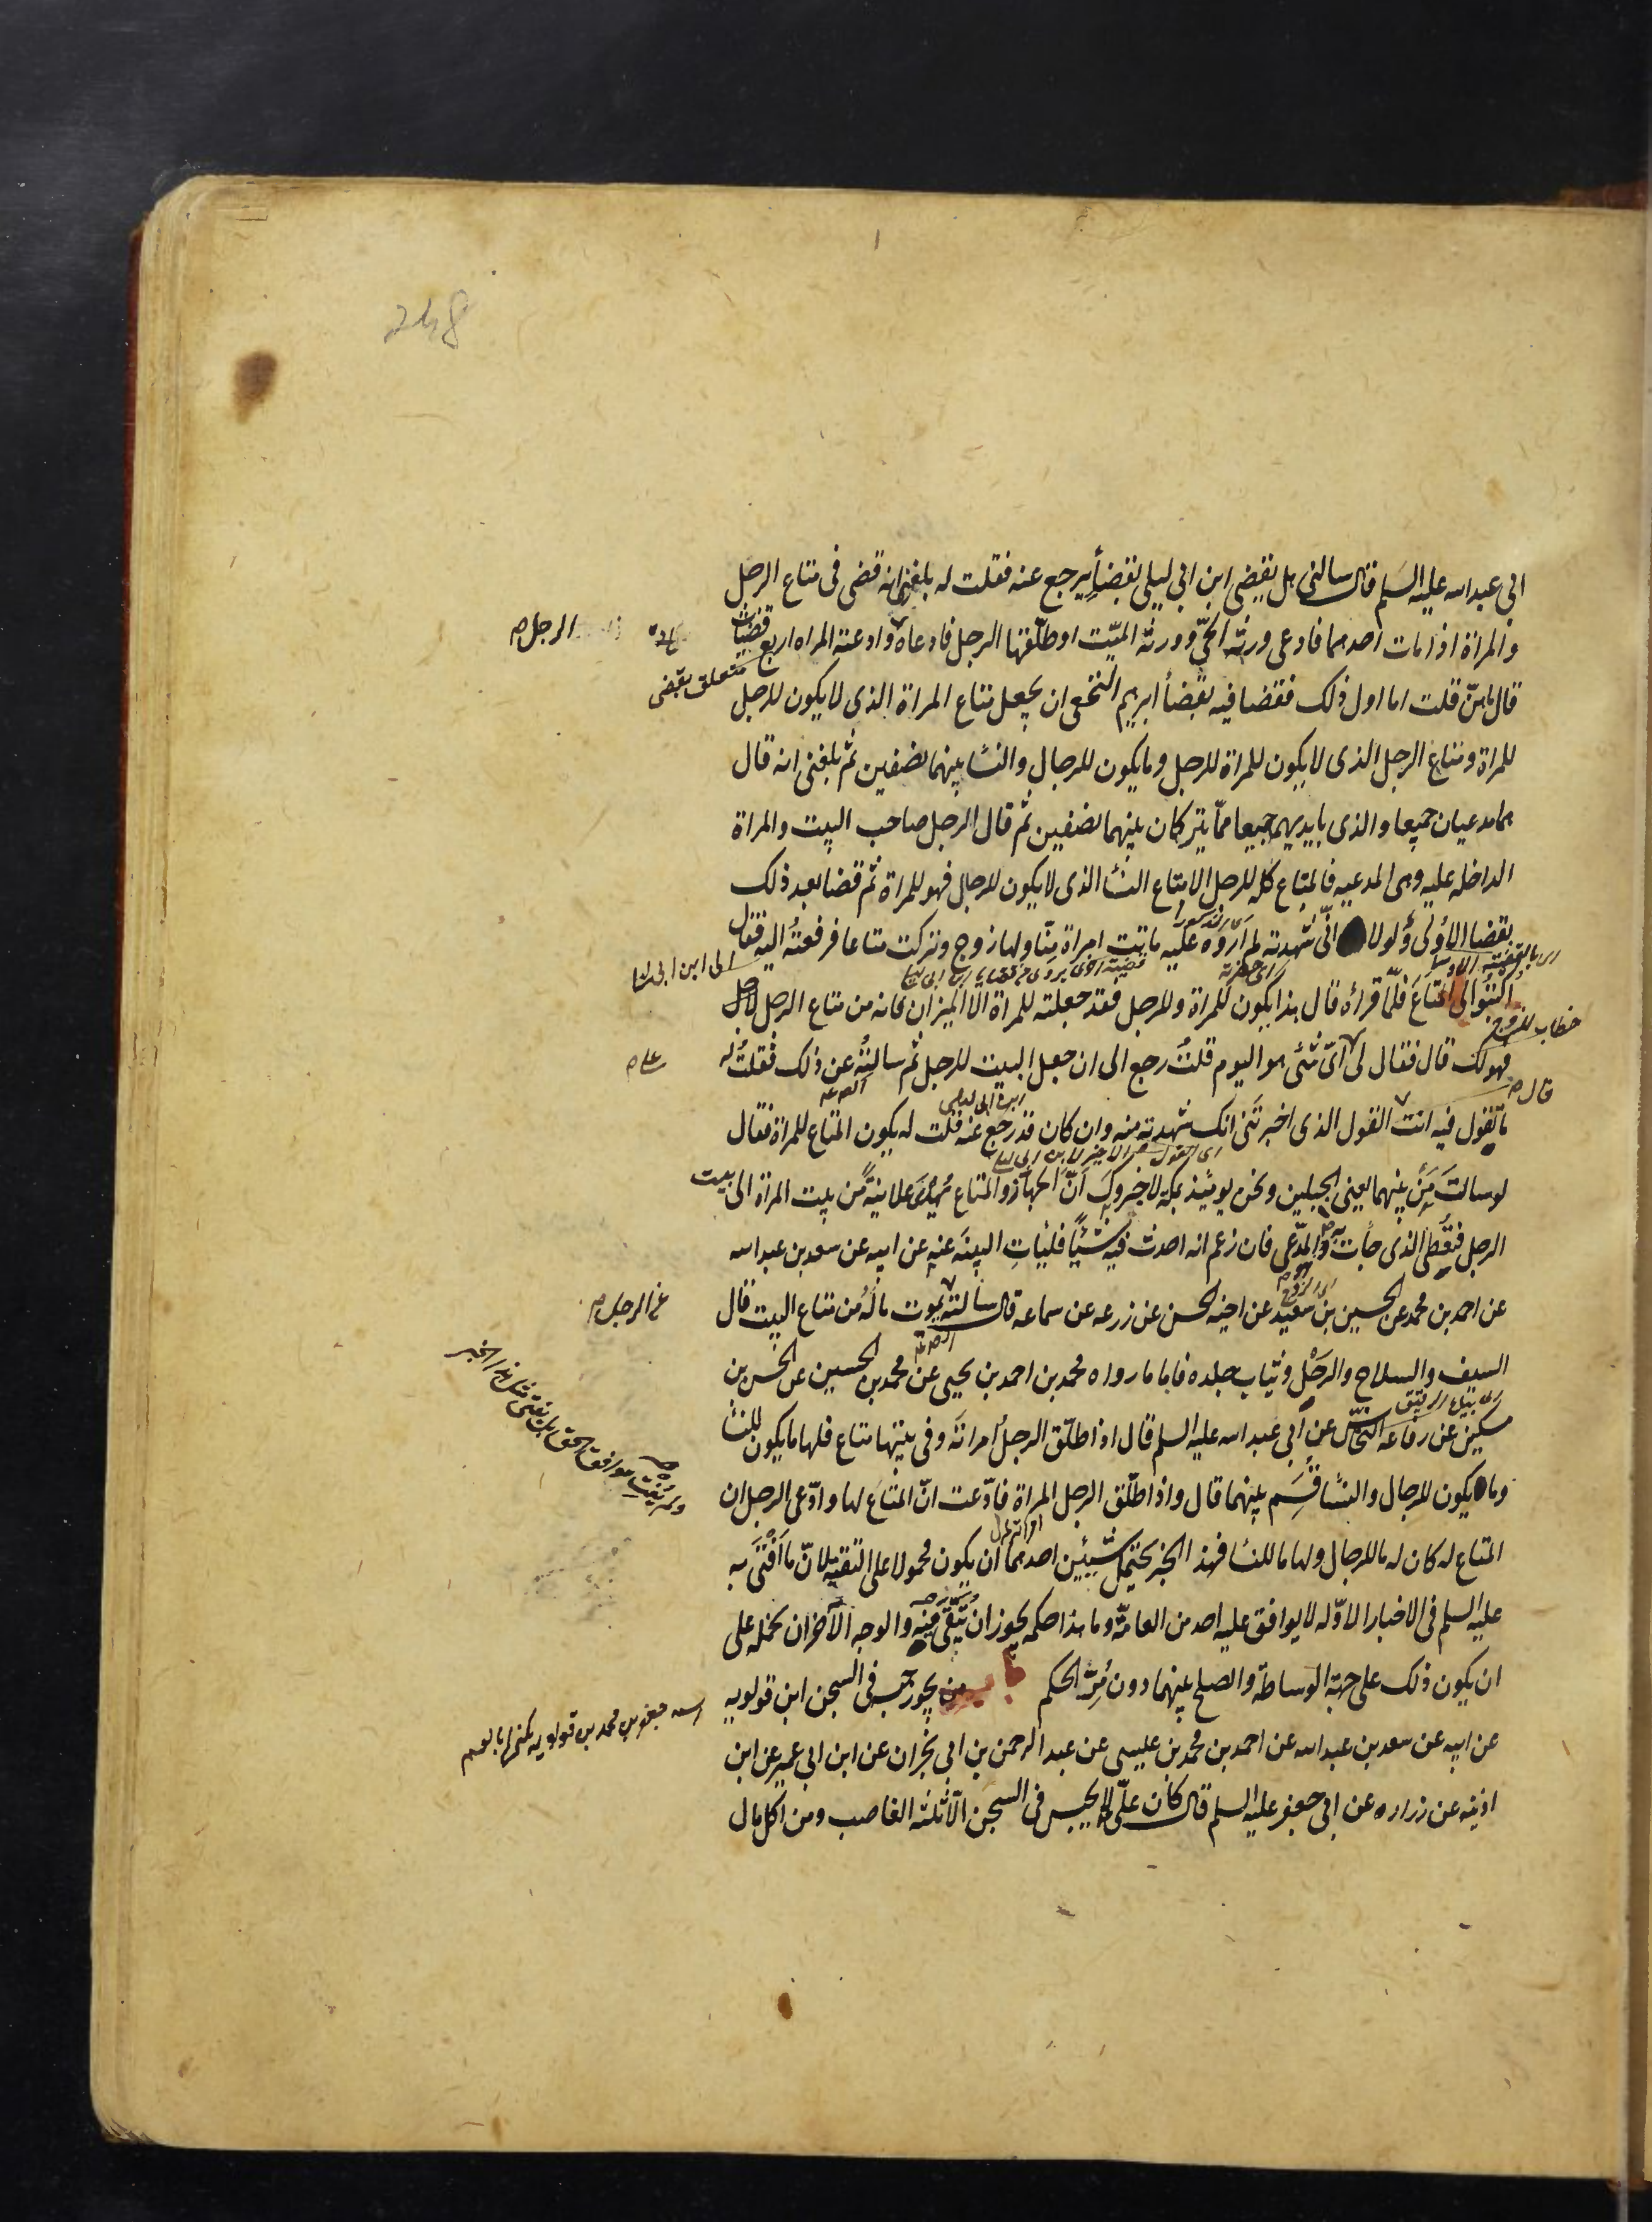 248
ابي عبد الله عليه السلم قال سالنى هل يقضى ابن ابي ليلى بقضأ يرجع عنه فقلت له بلغنى انه قضى فى متاع الرجل
والمراة اذا مات احدهما فادعى ورثة الحيّ وورثة الميّت او طلّقها الرجل فادعاه وادعته المراه اربع قضيات
الرجل
متعلق بقضى
قال ماهنّ قلت اما اول ذلك فقضا فيه بقضأ ابرهيم النخعى ان يجعل متاع المراة الذى لا يكون للرجل
للمراة ومتاع الرجل الذى لا يكون للمراة للرجل وما يكون للرجال والنسا بينهما نصفين ثم بلغنى انه قال
هما مدعيان جميعا والذى بايديهم جميعا ممّا يتركان بينهما نصفين ثم قال الرجل صاحب البيت والمراة
الداخله عليه وهى المدعيه فالمتاع كله للرجل الا متاع النسا الذى لا يكون للرجال فهو للمراة ثم قضا بعد ذلك
بقضا لولا انّى شهدته لم اروه عليه ماتت امراة منّا ولها زوج وتركت متاعا فرفعته اليه فقال
الى ابن ابى ليلى
اكتبوا الى المتاع فلمّا قرأه قال هذا يكون للمراة وللرجل فقد جعلته للمراة الا الميزان فانه من متاع الرجل
خطاب للزوج
فهو لك قال فقال لى اىّ شئ هو اليوم قلت رجع الى ان جعل البيت للرجل ثم سالته عن ذلك فقلت له
قال
ما تقول فيه انت القول الذى اخبرتنى انك شهدته منه وان كان قد رجع عنه قلت له يكون المتاع للمراة فقال
لو سالت من بينهما يعنى الجبلين ونحن يومئذ بمكة لاخبروك انّ الجهاز والمتاع يهدى علانية من بيت المراة الى بيت
الرجل فتعطى الذى جأت به والمدّعى فان زعم انه احدث فيه شيئا فليات البينة عنه عن ابيه عن سعد بن عبد الله
عن احمد بن محمد عن الحسين بن سعيد عن اخيه الحسن عن زرعه عن سماعه قال سالته يموت ماله من متاع البيت قال
عن الرجل
السيف والسلاح والرحل وثياب جلده فاما ما رواه محمد بن احمد بن يحيى عن محمد بن الحسين عن الحسن بن
مسكين عن رفاعه النخاس عن ابي عبد الله عليه السلم قال اذا طلّق الرجل امراته وفى بيتها متاع فلها ما يكون للنسا
وما يكون للرجال والنسا قسم بينهما قال واذا طلّق الرجل المراة فادّعت انّ المتاع لها وادّعى الرجل ان
المتاع له كان له ما للرجال ولها ما للنسا فهذا الخبر يحتمل شيئين احدهما ان يكون محمولا على التقية لانّ ما افتى به
عليه السلم فى الاخبار الاوّله لا يوافق عليه احد من العامة وما هذا حكمه يجوز ان يتّقى فيه والوجه الآخر ان نحمله على
ان يكون ذلك على جهة الوساطة والصلح بينهما دون مرّ الحكم باب من يجوز حبسه فى السجن ابن قولويه
اسمه جعفر بن محمد بن قولويه يكنى ابا القسم
عن ابيه عن سعد بن عبد الله عن احمد بن محمد بن عيسى عن عبد الرحمن بن ابي نجران عن ابن ابي عمير عن ابن
اذينه عن زراره عن ابي جعفر عليه السلم قال كان علىّ لا يحبس فى السجن الّا ثلثه الغاصب ومن اكل مال